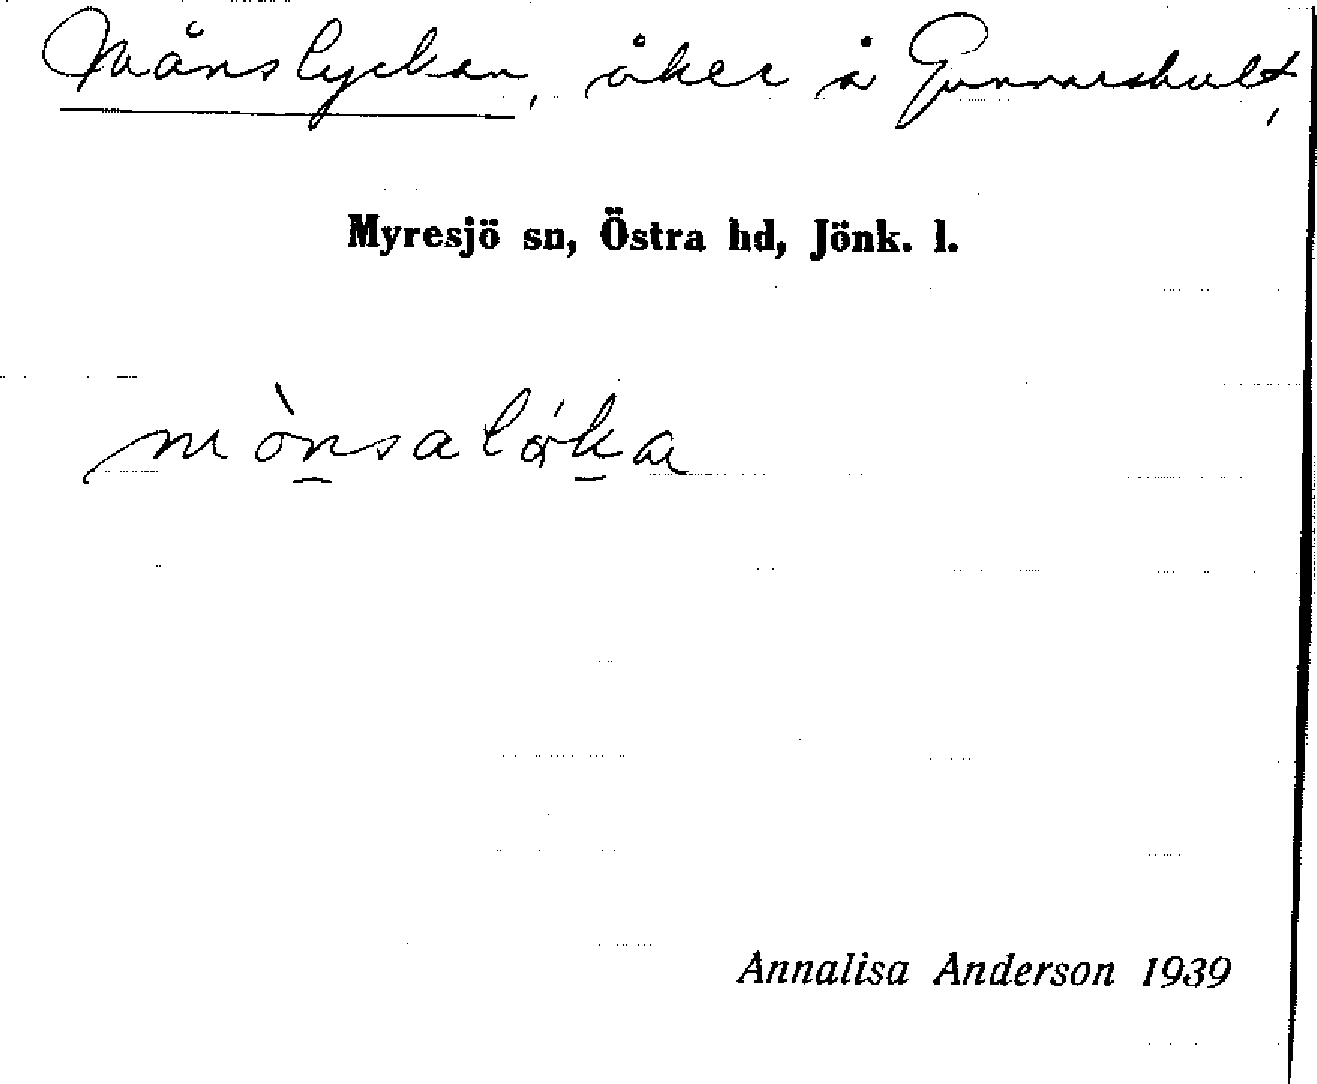 Månslyckan, åker å Gunnarshult,
Myresjö sn, Östra hd, Jönk. l.
Annalisa Anderson 1939